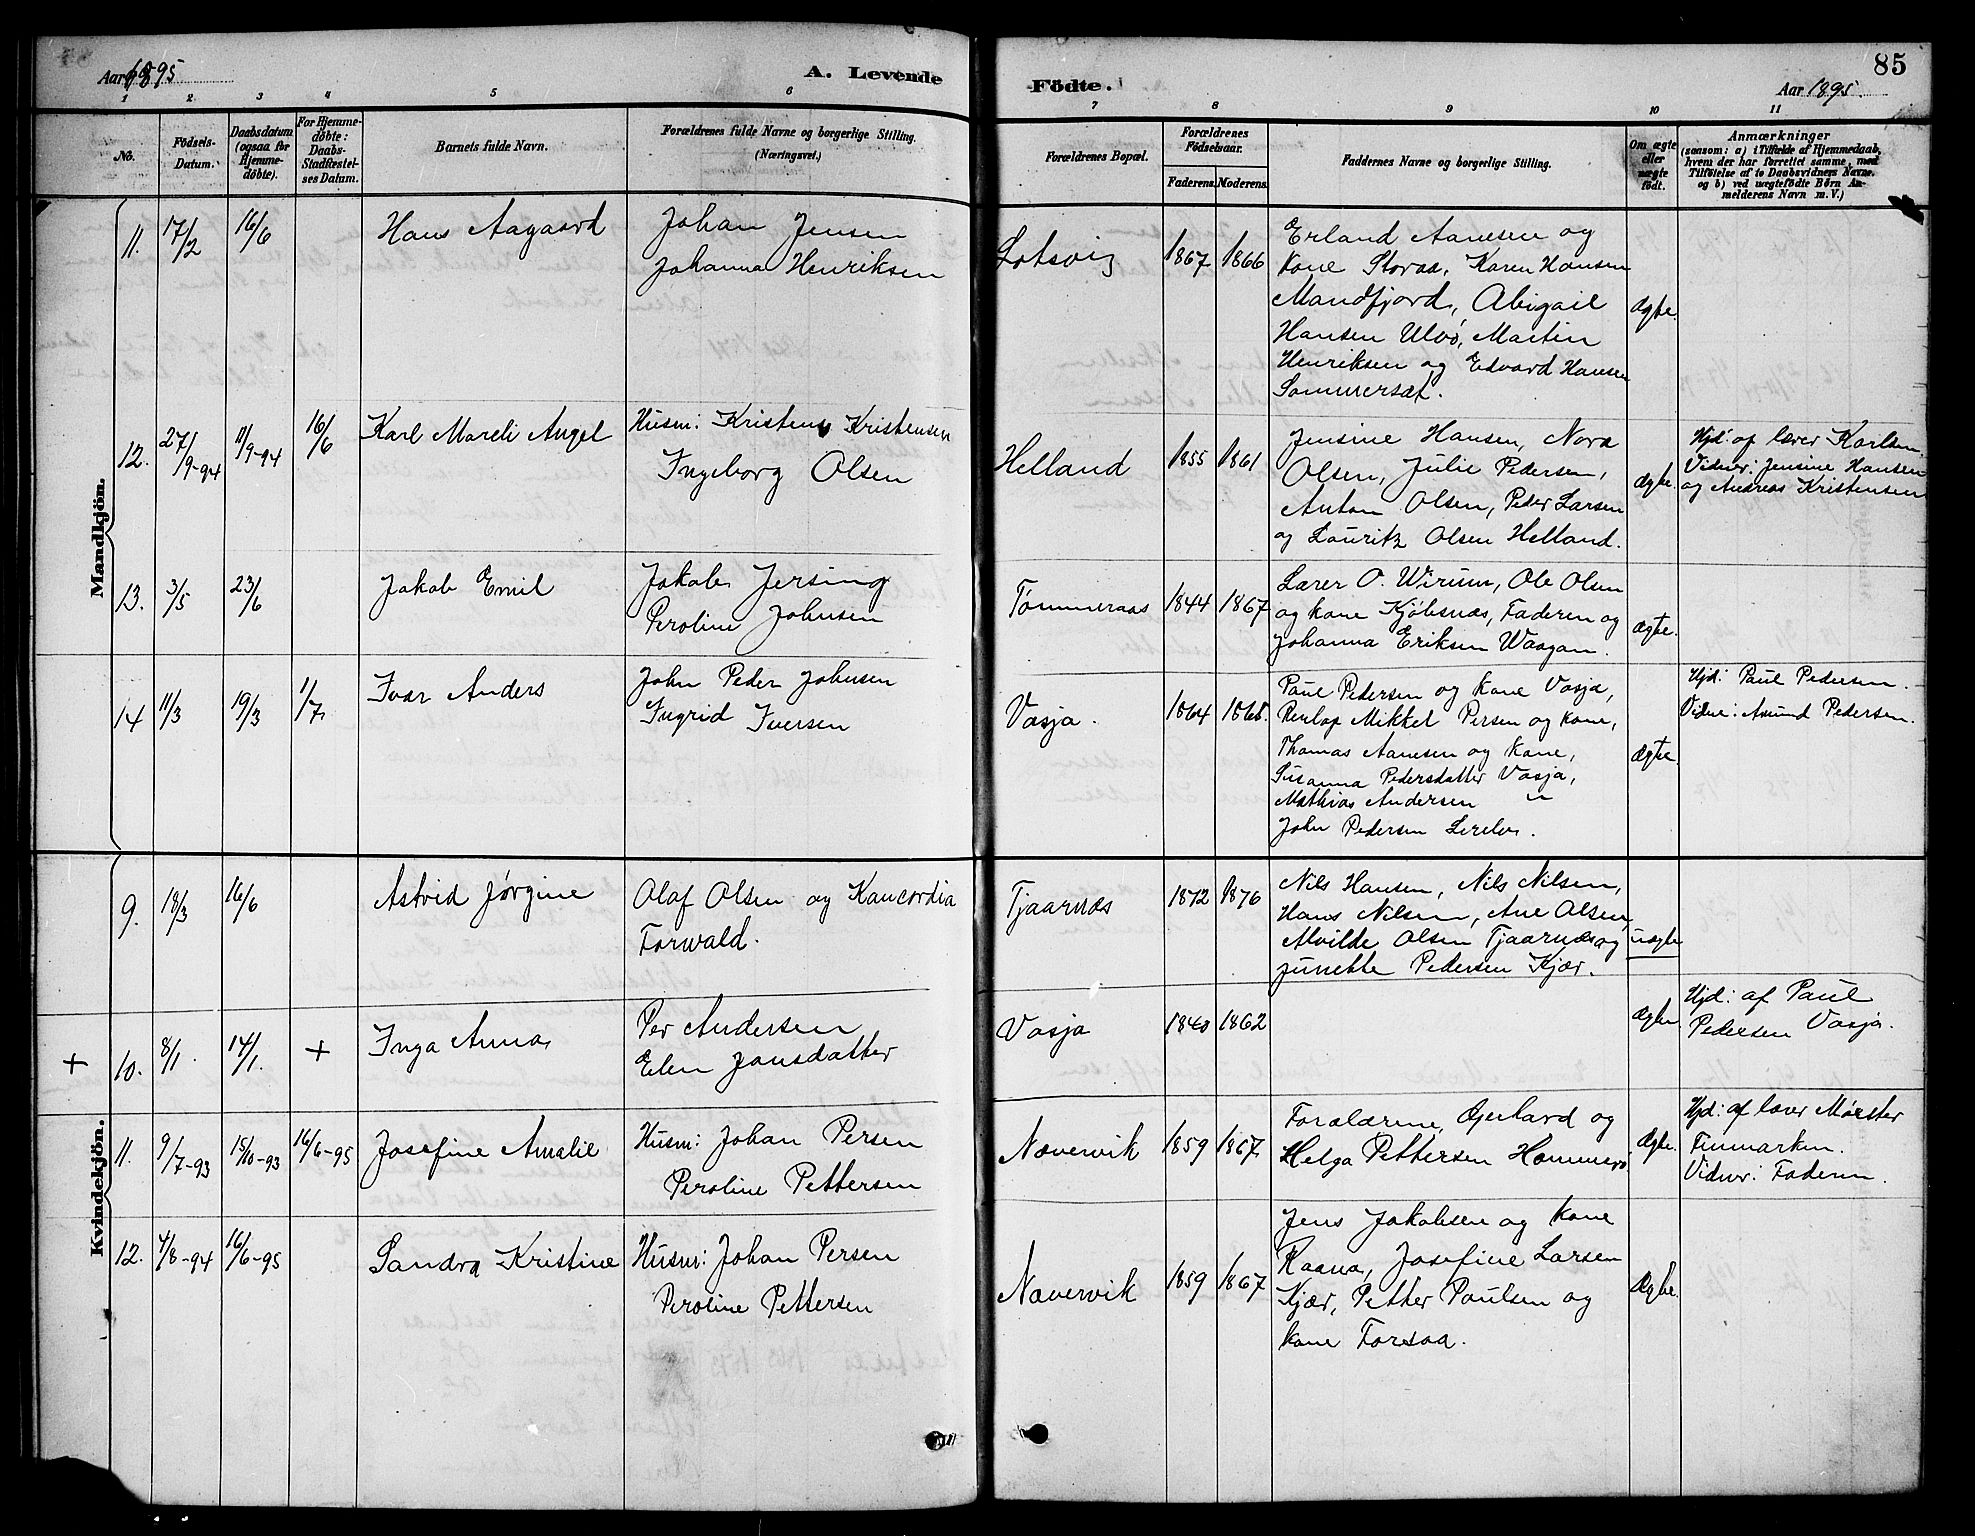 Aar 1895
A. Levende
Födte.
85
Aar 1895.
1 2 3 4 5 6 7 8 9 10 11
No.
Födsels-Datum.
Daabsdatum (ogsaa for Hjemme-döbte).
For Hjemme-döbte: Daabs-Stadfæstel-ses Datum.
Barnets fulde Navn.
Forældrenes fulde Navne og borgerlige Stilling. (Næringsvei.)
Forældrenes Bopæl.
Forældrenes Födselsaar.
Faderens. Moderens.
Faddernes Navne og borgerlige Stilling.
Om ægte eller uægte födt.
Anmærkninger
(saasom: a) i Tilfælde af Hjemmedaab,
hvem der har forrettet samme, med
Tilföielse af to Daabsvidners Navne.
og b) ved uægtefödte Börn An-
melderens Navn m. V.)
Mandkjön.
11. 17/2 16/6 Hans Aagaard
Johan Jensen
Johanna Henriksen
1867 1866
Erland Aanesen og
Kone Storaa, Karen Hansen
Mandfjord, Abigail
Hansen Ulvø, Martin
Henriksen og Edvard Hansen
Sommersæt.
Ægte.
12. 27/9-94 11/9-94 16/6 Karl Mareli Angel
Husm: Kristens Kristensen
Ingeborg Olsen
Helland 1855 1861
Jensine Hansen, Nora
Olsen, Julie Pedersen,
Anton Olsen, Peder Larsen
og Lauritz Olsen Helland.
Ægte.
Hjd: af lærer Karlsen.
Vidner: Jensine Hansen
og Andreas Kristensen
13. 3/5 23/6 Jakob Emil
Jakob Jersing
Peroline Johnsen
Tømmeraas 1844 1867
Lærer O. Wirum, Ole Olsen
og kone Kjøbsnæs, Faderen og
Johanna Eriksen Waagan.
Ægte.
14 11/3 19/3 1/7 Ivar Anders
John Peder Johnsen
Ingrid Iversen
Vasja. 1864
Paul Pedersen og kone Vasja,
Mikkel Persen og kone,
Thomas Aanesen og kone,
Susanna Pedersdatter Vasja,
Mathias Andersen "
John Pedersen
Ægte.
Hjd: Paul Pedersen.
Vidner: Amund Pedersen.
Kvindekjön.
9. 18/3 16/6 Astrid Jørgine
Olaf Olsen og Kancordia
Forwald.
Tjaarnæs 1872 1876
Nils Hansen, Nils Nilsen,
Hans Nilsen, Ane Olsen,
Alvilde Olsen Tjaarnæs og
Junette Pedersen Kjær.
uægte
+ 10. 8/1. 14/1. + Inga Anna
Per Andersen
Elen Jonsdatter
Vasja 1840 1862
Ægte
Hjd: af Paul
Pedersen Vasja.
11. 9/7-93 15/10-93 16/6-95 Josefine Amalie
Husm: Johan Persen
Peroline Pettersen
Nævervik 1859 1867
Forældrene, Gjerhard og
Helga Pettersen Hammerø
Ægte.
Hjd: af lærer Mørster
Finmarken.
Vidner: Faderen.
12. 4/8-94 16/6-95 Sandra Kristine
Husm: Johan Persen
Peroline Pettersen
Nævervik 1859 1867
Jens Jakobsen og kone
Raana, Josefine Larsen
Kjær, Petter Paulsen og
kone Forsaa.
Ægte.